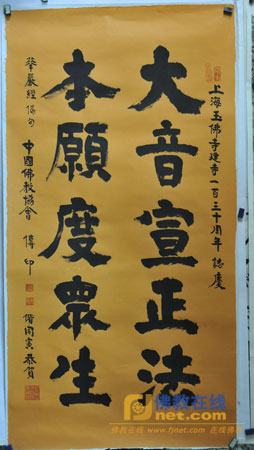 上海玉佛寺建寺一百三十周年誌慶
大音宣正法
本願度眾生
華嚴經偈句
中國佛教協會 傳印
偕同寅恭賀
佛教在线
net.com
佛教在线 www.fjnet.com 在线佛教